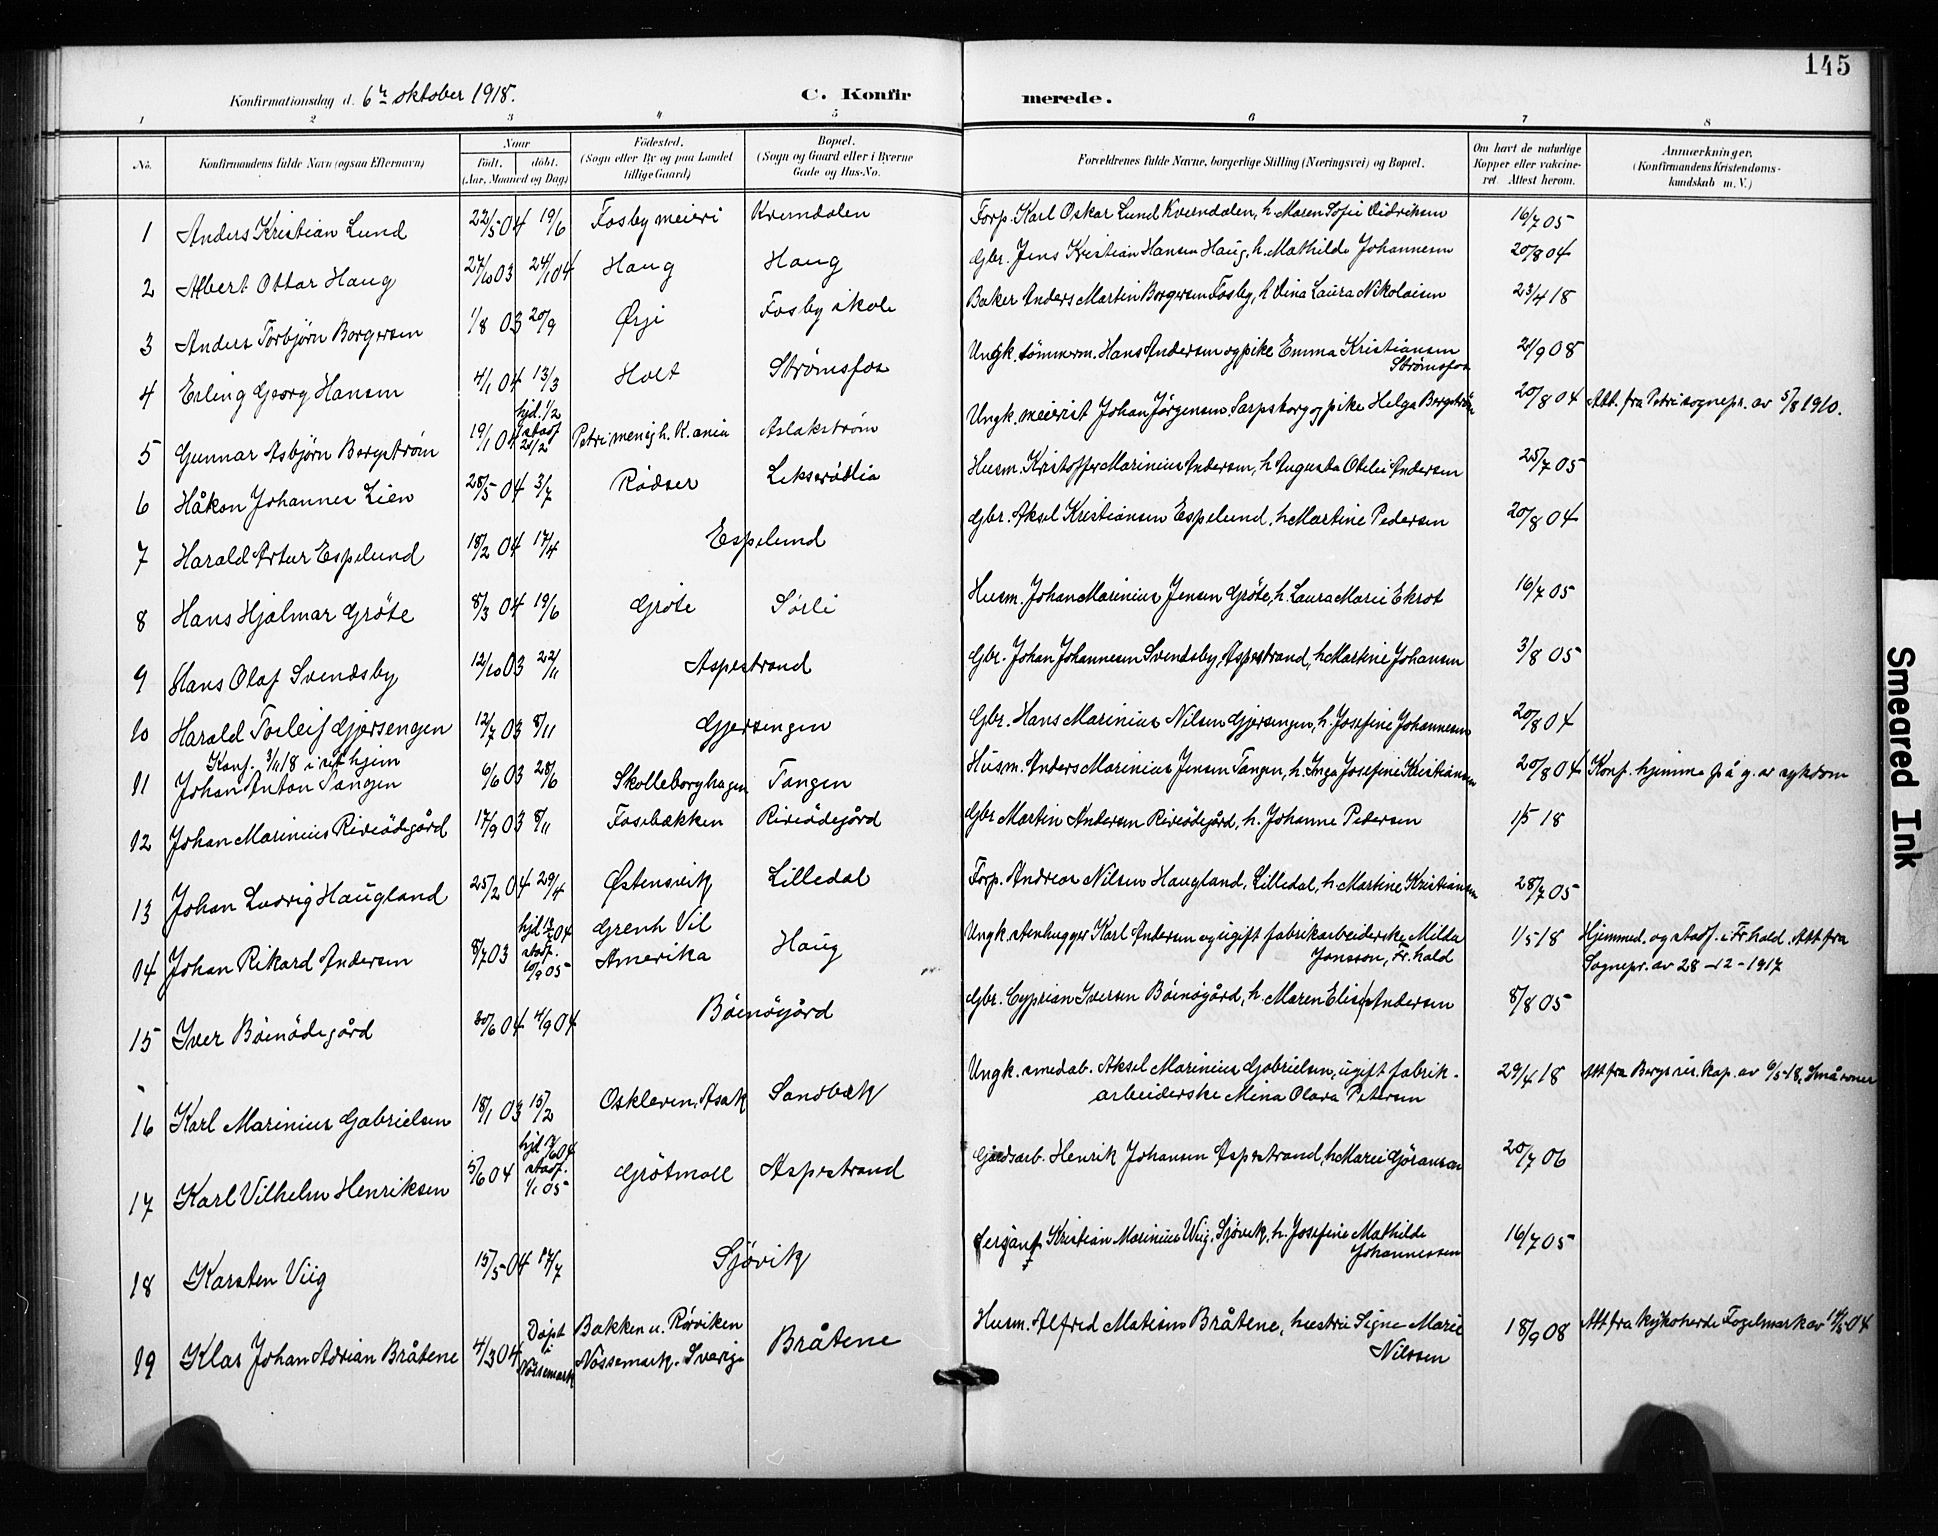 145
Konfirmationsdag d. 6te oktober 1918.
C. Konfirmerede.
1 2 3 4 5 6 7 8
No.
Konfirmandens fulde Navn (ogsaa Efternavn)
Naar
født. døbt.
(Aar, Maaned og Dag)
Fødested.
(Sogn eller By og paa Landet
tillige Gaard)
Bopæl.
(Sogn og Gaard eller i Byerne
Gade og Hus-No.
Forældrenes fulde Navne, borgerlige Stilling (Næringsvei) og Bopæl.
Om havt de naturlige
Kopper eller vakcine-
ret Attest herom.
Anmærkninger.
(Konfirmandens Kristendoms-
kundskab m. V.)
1 Anders Kristian Lund 22/5 04 19/6 Fosby meieri Kverndalen Forp. Karl Oskar Lund Kverndalen, h. Maren Sofie Didriksen 16/7 05
2 Albert Ottar Haug 27/10 03 24/1 04 Haug Haug Gbr. Jens Kristian Hansen Haug, h. Mathilde Johannesen 20/8 04
3 Anders Torbjørn Borgersen 1/8 03 20/9 Ørje Fosby skole Baker Anders Martin Borgersen Fosby, h Dina Laura Nikolaisen 23/4 18
4 Erling Georg Hansen 4/1 04 13/3 Holt Strømsfos Ungk. tømmerm. Hans Andersen og pike Emma Kristiansen
Strømsfos 21/9 08
5 Gunnar Asbjørn Bergstrøm 19/1 04 hjd. 1/2
stadf
21/2 Petri menigh. K.ania Aslakstrøm Ungk. meierist Johan Jørgensen Sarpsborg og pike Helga Bergstrøm 20/8 04 Att. fra Petri sognepr. av 5/8 1910.
6 Håkon Johannes Lien 28/5 04 3/7 Rødser Lekserødlia Husm. Kristoffer Marinius Andersen, h Augusta Otelie Andersen 25/7 05
7 Harald Artur Espelund 18/2 04 17/4 Espelund Gbr. Aksel Kristiansen Espelund, h Martine Pedersen 20/8 04
8 Hans Hjalmar Grøte 8/3 04 19/6 Grøte Sørli Husm. Johan Marinius Jensen Grøte, h. Laura Marie Ekrot 16/7 05
9 Hans Olaf Svendsby 12/10 03 22/11 Aspestrand Gbr. Johan Johannesen Svendsby, Aspestrand, h Martine Johansen 3/8 05
10 Harald Torleif Gjersengen 12/7 03 8/11 Gjersengen Gbr. Hans Marinius Nilsen Gjersengen, h. Josefine Johannesen 20/8 04
Konf. 3/11 18 i sit hjem
11 Johan Anton Tangen 6/6 03 28/6 Skolleborghagen Tangen Husm. Anders Marinius Jensen Tangen, h. Inga Josefine Kristiansen 20/8 04 Konf. hjemme på g. av sykdom
12 Johan Marinius Riviødegård 17/9 03 8/11 Fossbækken Riviødegård Gbr Martin Andersen Riviødegård, h. Johanne Pedersen 1/5 18
13 Johan Ludvig Haugland 25/2 04 29/4 Østensvik Lilledal Forp. Andreas Nilsen Haugland, Lilledal, h. Martine Kristiansen 28/7 05
14 Johan Rikard Andersen 8/7 03 stadf.
10/9 05 Grenh Vil
Amerika Haug Ungk. stenhugger Karl Andersen og ugift fabrikarbeiderske Milda
Jonsson, Fr.hald 1/5 18 Hjemmed. og stadf. i Fr.hald. Att fra
Sognepr. av 28-12-1917
15 Iver Bøenødegård 30/6 04 4/9 04 Bøenøgård Gbr. Cyprian Iversen Bøenøgård, h. Maren Elise Andersen 8/8 05
16 Karl Marinius Gabrielsen 18/1 03 15/2 Oskleven, Asak Sandbæk Ungk. smedab. Aksel Marinius Gabrielsen, ugift fabrik-
arbeiderske Mina Olava Petersen 29/4 18 Att fra Bergs res. kap. av 6/5-18, Småvoner
17 Karl Vilhelm Henriksen 5/6 04 hjd 7/6 04
stadf.
1/1 05 Grøtmoll Aspestrand Gårdsarb. Henrik Johansen Aspestrand, h Marie Gøransen 20/7 06
18 Karsten Viig 15/5 04 17/7 Sjøvik Sergant Kristian Marinius Wiig, Sjøvik, h. Josefine Mathilde
Johannessen 16/7 05
19 Klas Johan Adrian Bråtene 4/3 04 Døpt
i
Nössemark Bakken u. Rörviken
Nössemark. Sverige Bråtene Husm. Alfred Matisen Bråtene, hustru Signe Marie
Nilssen 18/9 08 Att fra kykoherde Fogelmark av 14/5-04
Smeared Ink